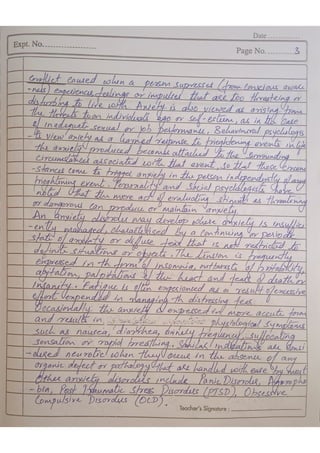 Date ............
Expt. No. ....................
Page No. .......... 3
conflict caused when a person supresses (from conscious aware
-ness) experiences, feelings or impulses that are too threatening or
disturbing to live with. Anxiety is also viewed as arising from
the threats to an individuals ego or self-esteem, as in the case
of inadequate sexual or job performance. Behavioural psychologists
view anxiety as a learned response to frightening events in life
the anxiety produced becomes attached to the surrounding
circumstances associated with that event, so that those circum
-stances come to trigger anxiety in the person independently of any
frightening event. Personality and Social psychologists have
noted that the mere act of evaluating stimuli as threatening
or dangerous can produce or maintain anxiety.
An anxiety disorder may develop anxiety is insuffici
-ently managed, characterised by a continuing or periodic
state of anxiety or diffuse fear that is not restricted to
definite situations or objects. The tension is frequently
expressed in the form of insomnia, outbursts of irritability,
agitation, palpitations of the heart and fears of death or
insanity. Fatigue is often experienced as a result of excessive
effort expended in managing the distressing fear.
Occasionally the anxiety is expressed in more acute form
and results in physiological symptoms
such as nausea, diarrhea, urinary frequency, suffocating
sensation or rapid breathing. Similar indications are
-dered neurotic when they occur in the absence of any
organic defect or pathology that are handled with ease by most
Other anxiety disorders include Panic Disorder, Agorapho
-bia, Post Traumatic Stress Disorders (PTSD), Obsessive
Compulsive Disorders (OCD).
Teacher's Signature : ....................